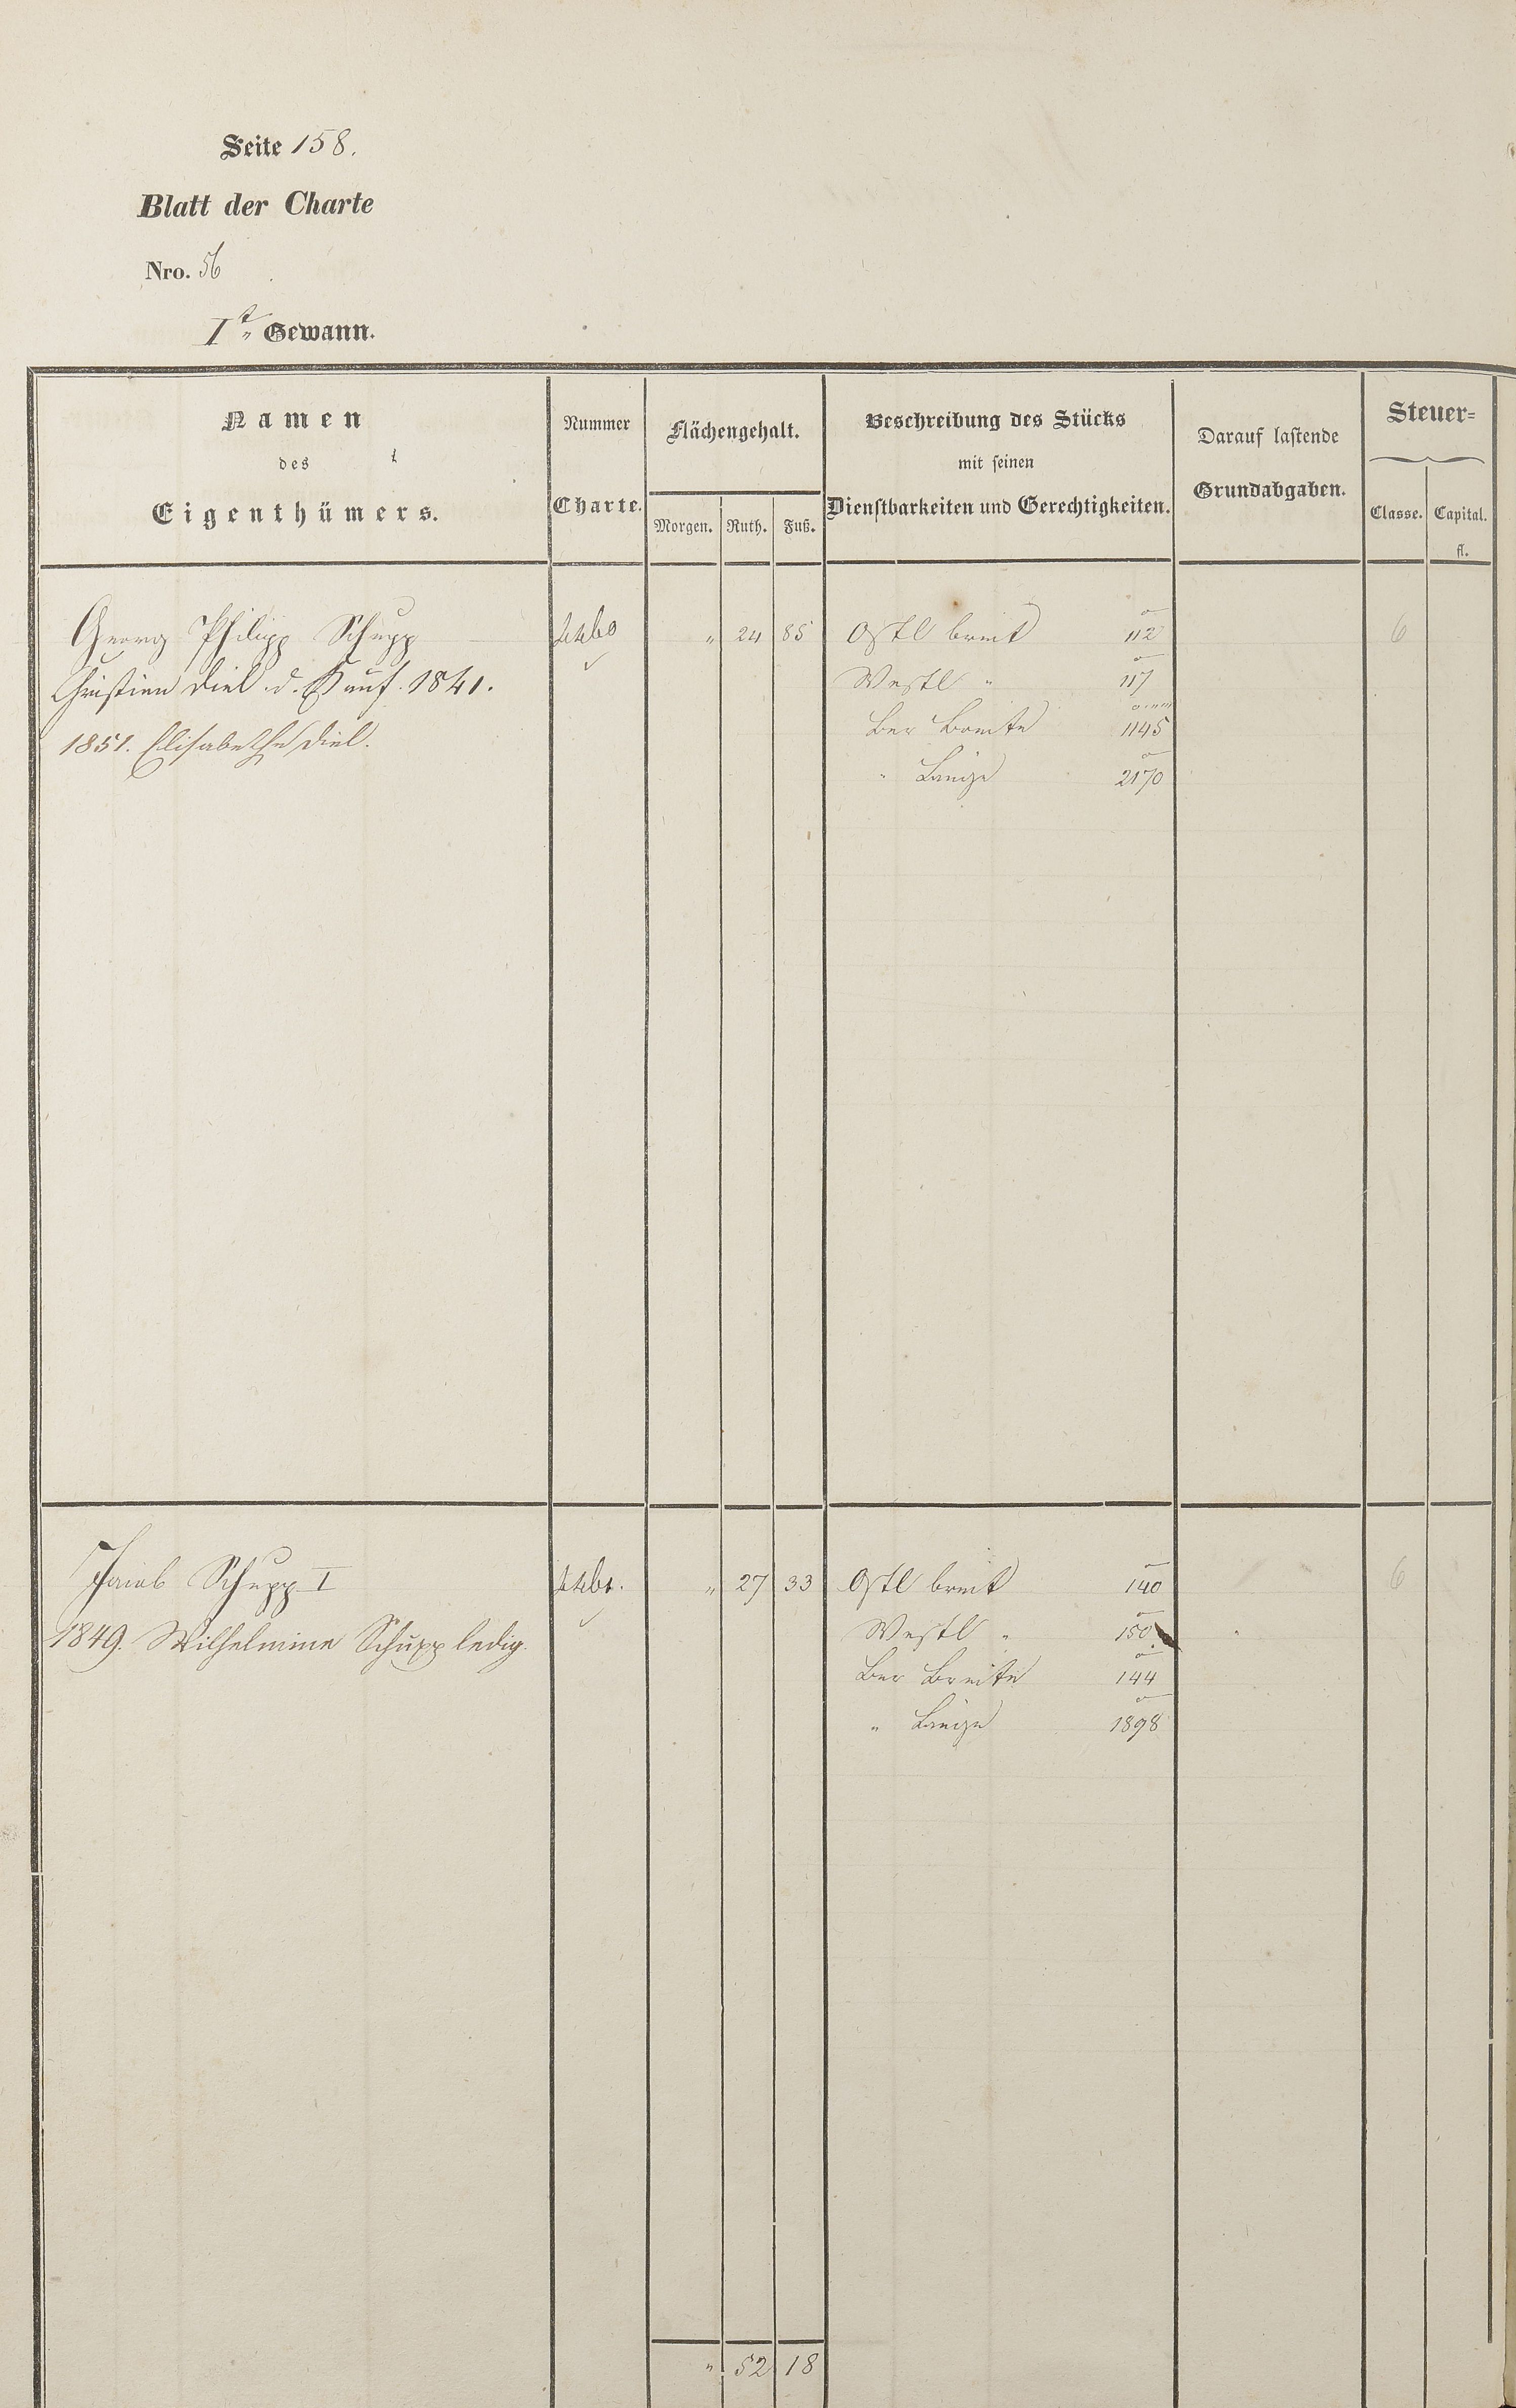 Seite 158.
Blatt der Charte
Nro. 56
Iᵗ„ Gewann.
Namen des Eigenthümers.
Nummer Charte.
Flächengehalt.
Morgen. Ruth. Fuß.
Beschreibung des Stücks
mit seinen
Dienstbarkeiten und Gerechtigkeiten.
Darauf lastende
Grundabgaben.
Steuer=
Classe. Capital.
fl.
Georg Philipp Schupp „ 24 85 Ostl breit 112 6
Christian Diel d. Kauf. 1841. Westl „ 117
1851. Elisabethe Diel. Ber Breite 1145
„ Länge 2170
Jacob Schupp I „ 27 33 Ostl breit 140 6
1849. Wilhelmine Schupp ledig. Westl „ 150
Ber Breite 144
„ Länge 1898
„ 52 18